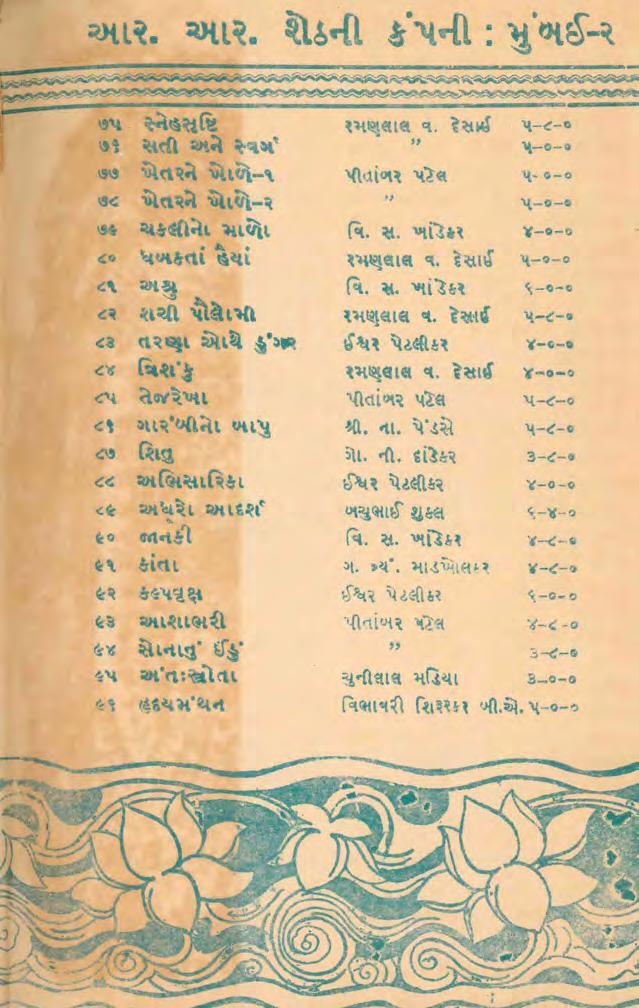 આર. આર. શેઠની કંપની : મુંબઈ-૨
૭૫ સ્નેહસૃષ્ટિ રમણલાલ વ. દેસાઈ ૫-૮-૦
૭૬ સતી અને સ્વર્ગ ,, ૫-૦-૦
૭૭ ખેતરને ખોળે-૧ પીતાંબર પટેલ ૫-૦-૦
૭૮ ખેતરને ખોળે-૨ ,, ૫-૦-૦
૭૯ ચકલીનો માળો વિ. સ. ખાંડેકર ૪-૦-૦
૮૦ ધબકતાં હૈયાં રમણલાલ વ. દેસાઈ ૫-૦-૦
૮૧ અશ્રુ વિ. સ. ખાંડેકર ૬-૦-૦
૮૨ શચી પૌલોમી રમણલાલ વ. દેસાઈ ૫-૮-૦
૮૩ તરણા ઓથે ડુંગર ઈશ્વર પેટલીકર ૪-૦-૦
૮૪ ત્રિશંકુ રમણલાલ વ. દેસાઈ ૪-૦-૦
૮૫ તેજરેખા પીતાંબર પટેલ ૫-૮-૦
૮૬ ગારંબીનો બાપુ શ્રી. ના. પેંડસે ૫-૮-૦
૮૭ શિતુ ગો. ની. દાંડેકર ૩-૮-૦
૮૮ અભિસારિકા ઈશ્વર પેટલીકર ૪-૦-૦
૮૯ અધૂરો આદર્શ બચુભાઈ શુક્લ ૬-૪-૦
૯૦ જાનકી વિ. સ. ખાંડેકર ૪-૮-૦
૯૧ કાંતા ગ. ત્ર્યં. માડખોલકર ૪-૮-૦
૯૨ કલ્પવૃક્ષ ઈશ્વર પેટલીકર ૬-૦-૦
૯૩ આશાભરી પીતાંબર પટેલ ૪-૮-૦
૯૪ સોનાનું ઈંડું ,, ૩-૮-૦
૯૫ અંતઃસ્ત્રોતા ચુનીલાલ મડિયા ૩-૦-૦
૯૬ હૃદયમંથન વિભાવરી શિરૂરકર બી.એ. ૫-૦-૦